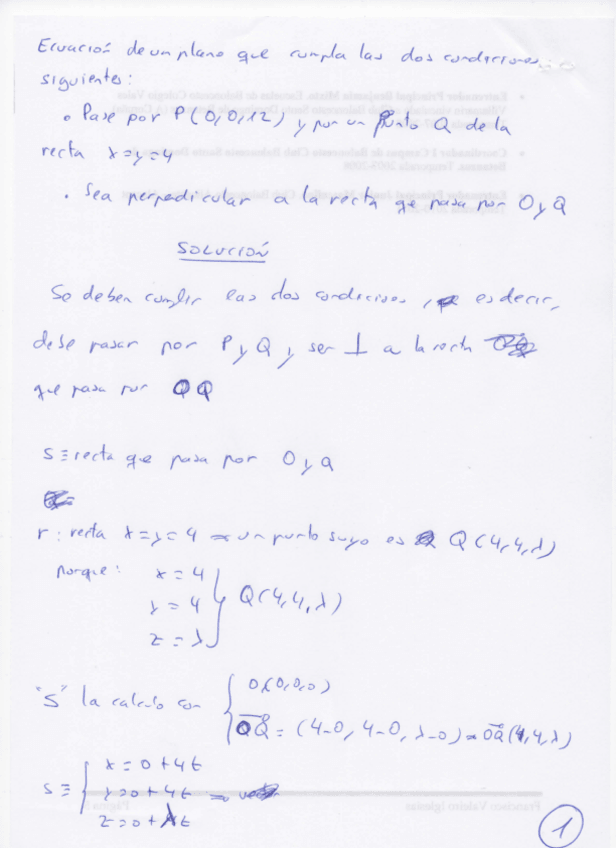 Ecuación de un plano que cumpla las dos condiciones
siguientes:
• Pase por P(0,0,12) y por un punto Q de la
recta x=y=4
• Sea perpedicular a la recta qe pasa por O y Q
SOLUCIÓN
Se deben cumplir las dos condiciones, es decir,
debe pasar por P y Q y ser ⊥ a la recta
que pasa por OQ
S ≡ recta que pasa por O y Q
r: recta x=y=4 ⇒ un punto suyo es Q(4,4,λ)
porque: x = 4
y = 4 } Q(4,4,λ)
z = λ
"S" la calculo con { O(0,0,0)
OQ = (4-0, 4-0, λ-0) ⇒ OQ(4,4,λ)
S ≡ { x = 0+4t
y = 0+4t ⇒
z = 0+λt
1